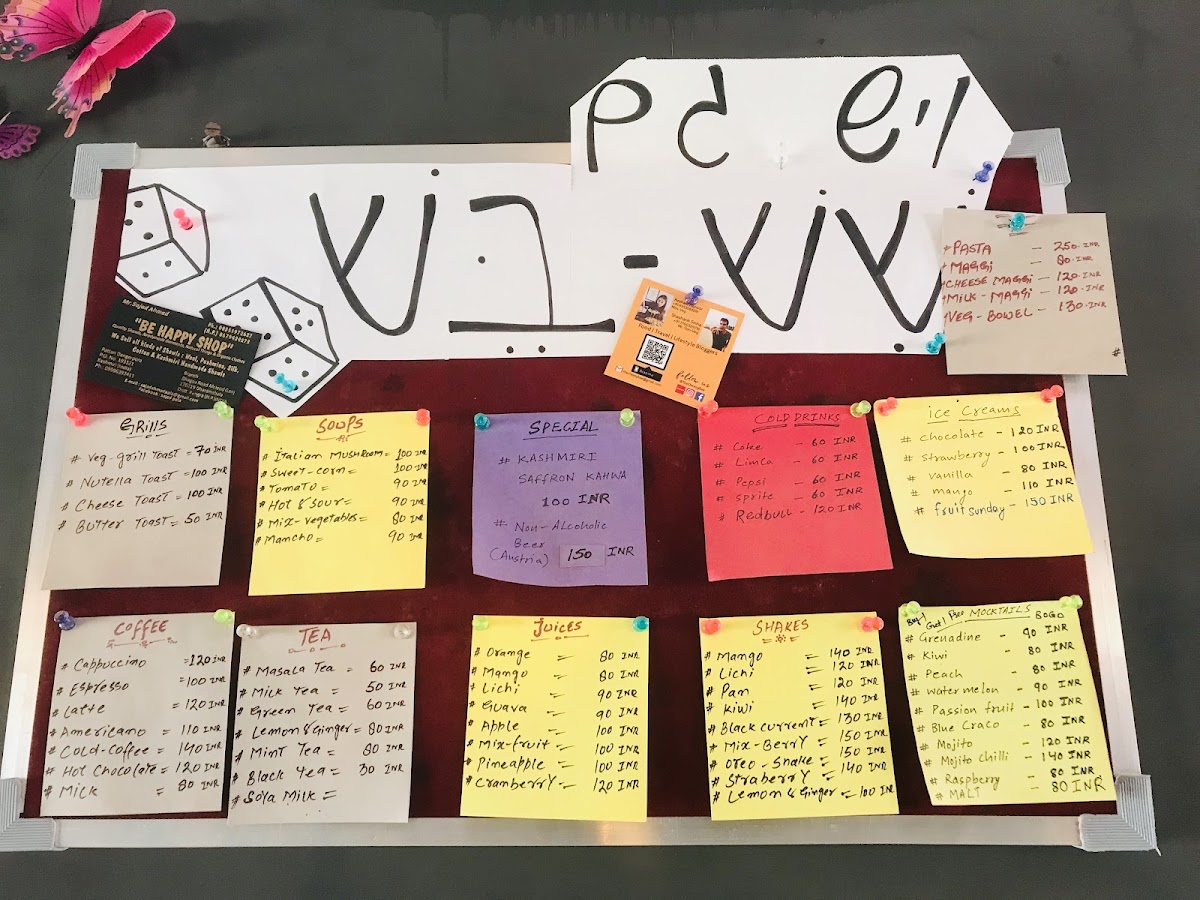 ויש גם
שש-בש
# PASTA - 250 INR
# MAGGI - 80 INR
# CHEESE MAGGI - 120 INR
# MILK-MAGGI - 120 INR
# VEG-BOWEL - 130 INR
#
Mr. Sajad Ahmed
"BE HAPPY SHOP"
We Sell all kinds of Shawls: Wool, Pashmina, Silk,
Cotton & Kashmiri Handmade Shawls
Food | Travel | Lifestyle Bloggers
Follow us
GRILLS
# Veg-grill Toast = 70 INR
# Nutella Toast = 100 INR
# Cheese Toast = 100 INR
# Butter Toast = 50 INR
SOUPS
# Italian Mushroom = 100 INR
# Sweet-corn = 100 INR
# Tomato = 90 INR
# Hot & Sour = 90 INR
# Mix-Vegetables = 80 INR
# Mancho = 90 INR
SPECIAL
# KASHMIRI
SAFFRON KAHWA
100 INR
# Non-Alcoholic
Beer
(Austria) 150 INR
COLD DRINKS
# Coke - 60 INR
# Limca - 60 INR
# Pepsi - 60 INR
# Sprite - 60 INR
# Redbull - 120 INR
ice Creams
# Chocolate - 120 INR
# Strawberry - 100 INR
# vanilla - 80 INR
# mango - 110 INR
# fruit sunday - 150 INR
COFFEE
# Cappuccino = 120 INR
# Espresso = 100 INR
# Latte = 120 INR
# Americano = 110 INR
# Cold-Coffee = 140 INR
# Hot Chocolate = 120 INR
# Milk = 80 INR
TEA
# Masala Tea = 60 INR
# Milk Tea = 50 INR
# Green Tea = 60 INR
# Lemon & Ginger = 80 INR
# Mint Tea = 80 INR
# Black Tea = 30 INR
# Soya Milk =
JUICES
# Orange = 80 INR
# Mango = 80 INR
# Lichi = 90 INR
# Guava = 90 INR
# Apple = 100 INR
# Mix-fruit = 100 INR
# Pineapple = 100 INR
# Cranberry = 120 INR
SHAKES
# Mango = 140 INR
# Lichi = 120 INR
# Pan = 120 INR
# Kiwi = 140 INR
# Black Current = 130 INR
# Mix-Berry = 150 INR
# Oreo-Shake = 150 INR
# Straberry = 140 INR
# Lemon & Ginger = 100 INR
Buy 1 Get 1 Free MOCKTAILS BOGO
# Grenadine - 90 INR
# Kiwi - 80 INR
# Peach - 80 INR
# Watermelon - 90 INR
# Passion fruit - 100 INR
# Blue Craco - 80 INR
# Mojito - 120 INR
# Mojito Chilli - 140 INR
# Raspberry - 80 INR
# MALT - 80 INR